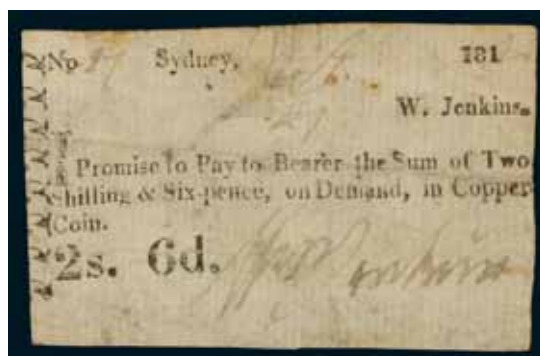 No Sydney, 181
W. Jenkins.
Promise to Pay to Bearer the Sum of Two
Shilling & Six-pence, on Demand, in Copper
Coin.
2s. 6d. Jenkins